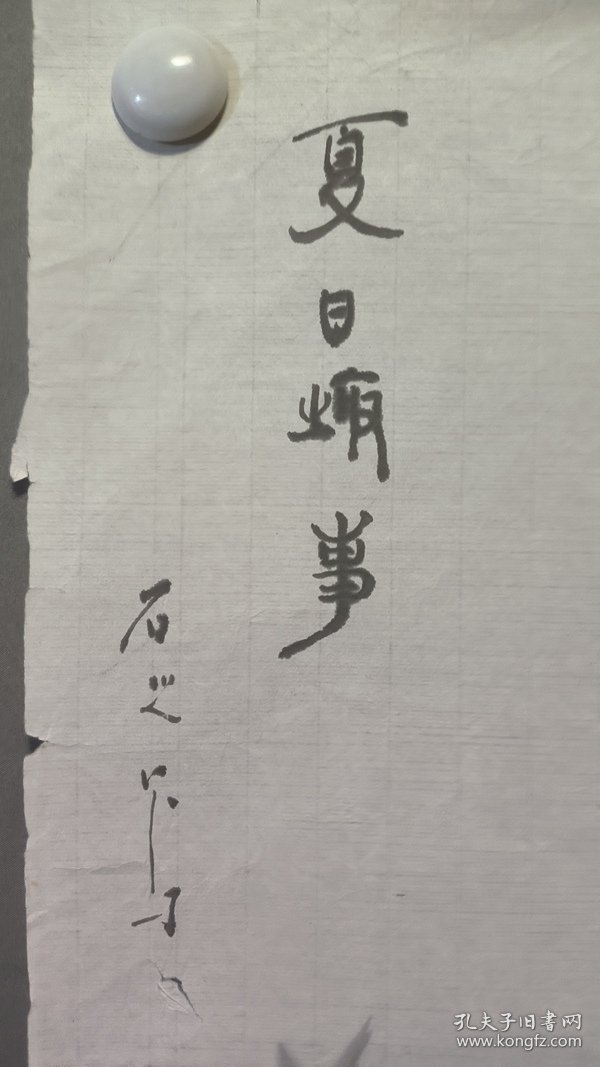 夏日趣事
石
孔夫子旧書网
www.kongfz.com